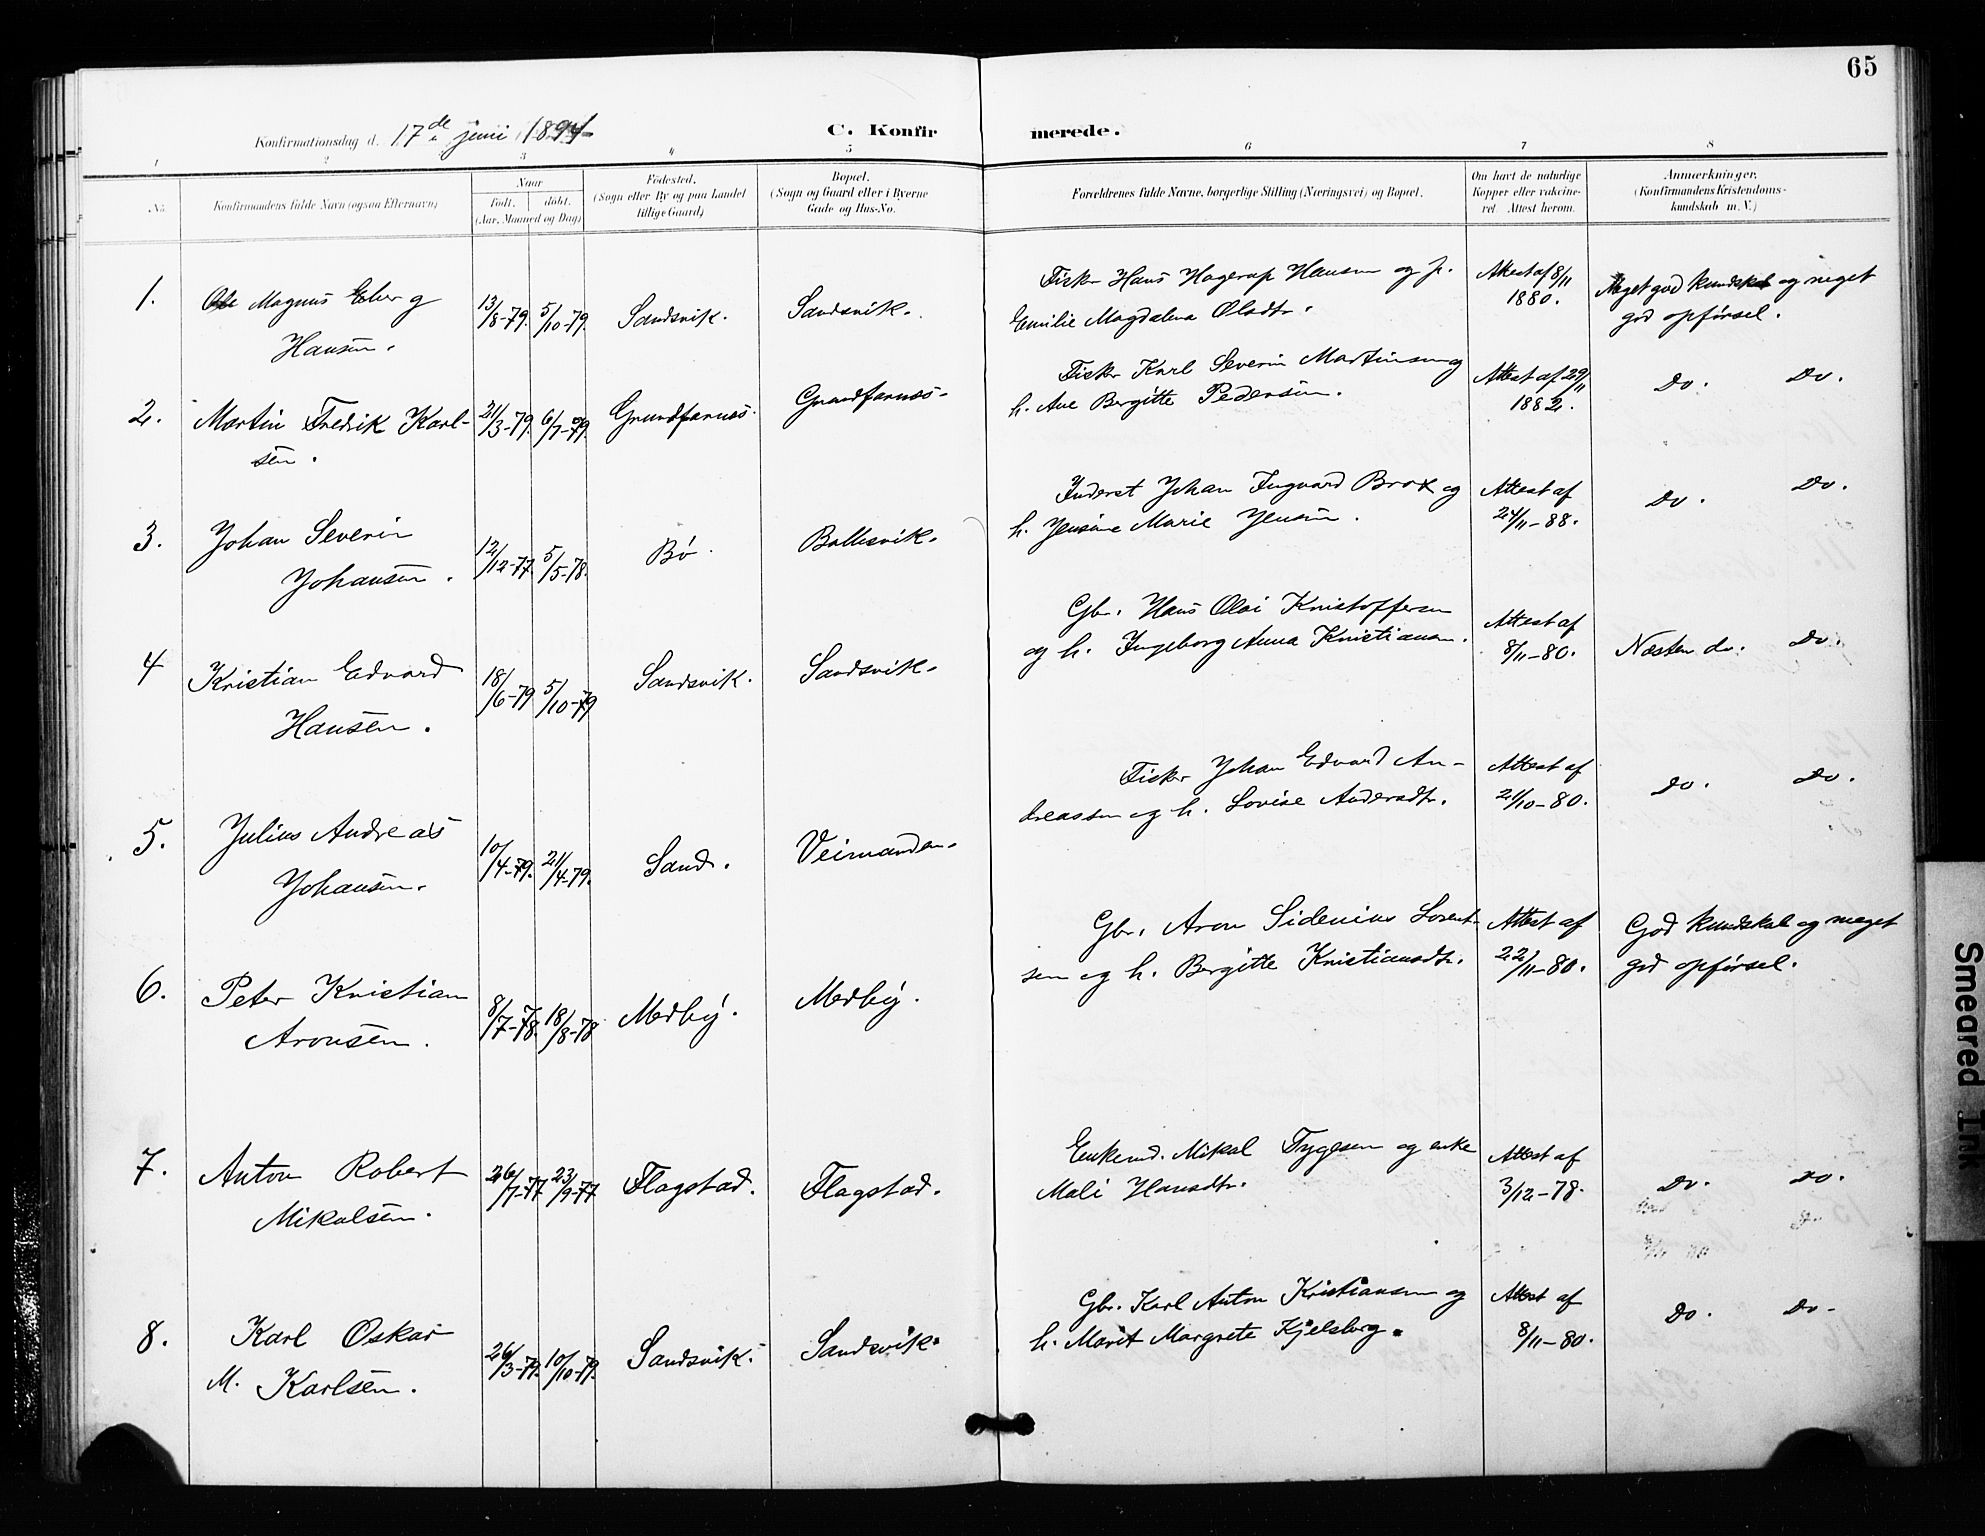 65
Konfirmationsdag d. 17de juni 1894
C. Konfirmerede.
1 2 3 4 5 6 7 8
No.
Konfirmandens fulde Navn (ogsaa Efternavn)
Naar
født. døbt.
(Aar, Maaned og Dag)
Fødested.
(Sogn eller By og paa Landet
tillige Gaard)
Bopæl.
(Sogn og Gaard eller i Byerne
Gade og Hus-No.
Forældrenes fulde Navne, borgerlige Stilling (Næringsvei) og Bopæl.
Om havt de naturlige
Kopper eller vakcine-
ret. Attest herom.
Anmærkninger.
(Konfirmandens Kristendoms-
kundskab m. V.)
1. Ole Magnus Eberg
Hansen.
13/8-79. 5/10-79. Sandsvik. Sandsvik.
Fisker Hans Hagerup Hansen og h.
Emilie Magdalena Olsdtr.
Attest af 8/11
1880.
Meget god kundskab og meget
god opførsel.
2. Martin Fredrik Karl-
sen.
21/3-79. 6/7-79. Grundfarnæs. Grundfarnæs.
Fisker Karl Severin Martinsen og
h. Ane Bergitte Pedersen.
Attest af 29/11
1882.
Do. Do.
3. Johan Severin
Johansen.
12/12-77. 5/5-78. Bø. Ballesvik.
Inderst Johan Ingvard Brox og
h. Jensine Marie Jensen.
Attest af
24/11-88.
Do. Do.
4 Kristian Edvard
Hansen.
18/6-79 5/10-79 Sandsvik. Sandsvik.
Gbr. Hans Olai Kristoffersen
og h. Ingeborg Anna Kristiansen.
Attest af
8/11-80.
Næsten do. Do.
5. Julius Andreas
Johansen.
10/4-79. 21/4-79. Sand. Veimanden.
Fisker Johan Edvard An-
dreassen og h. Lovise Andersdtr.
Attest af
21/10-80.
Do. Do.
6. Peter Kristian
Aronsen.
8/7-78. 18/8-78 Medby. Medby.
Gbr. Aron Sidenius Lorent-
sen og h. Bergitte Kristiansdtr.
Attest af
22/11-80.
God kundskab og meget
god opførsel.
7. Anton Robert
Mikalsen.
26/7-77 23/9-77 Flagstad. Flagstad.
Enkemd. Mikal Tygesen og enke
Mali Hansdtr.
Attest af
3/12-78.
Do. Do.
8. Karl Oskar
M. Karlsen.
26/3-79. 10/10-79. Sandsvik. Sandsvik.
Gbr. Karl Anton Kristiansen og
h. Marit Margrete Kjelsberg.
Attest af
8/11-80.
Do. Do.
Smeared Ink